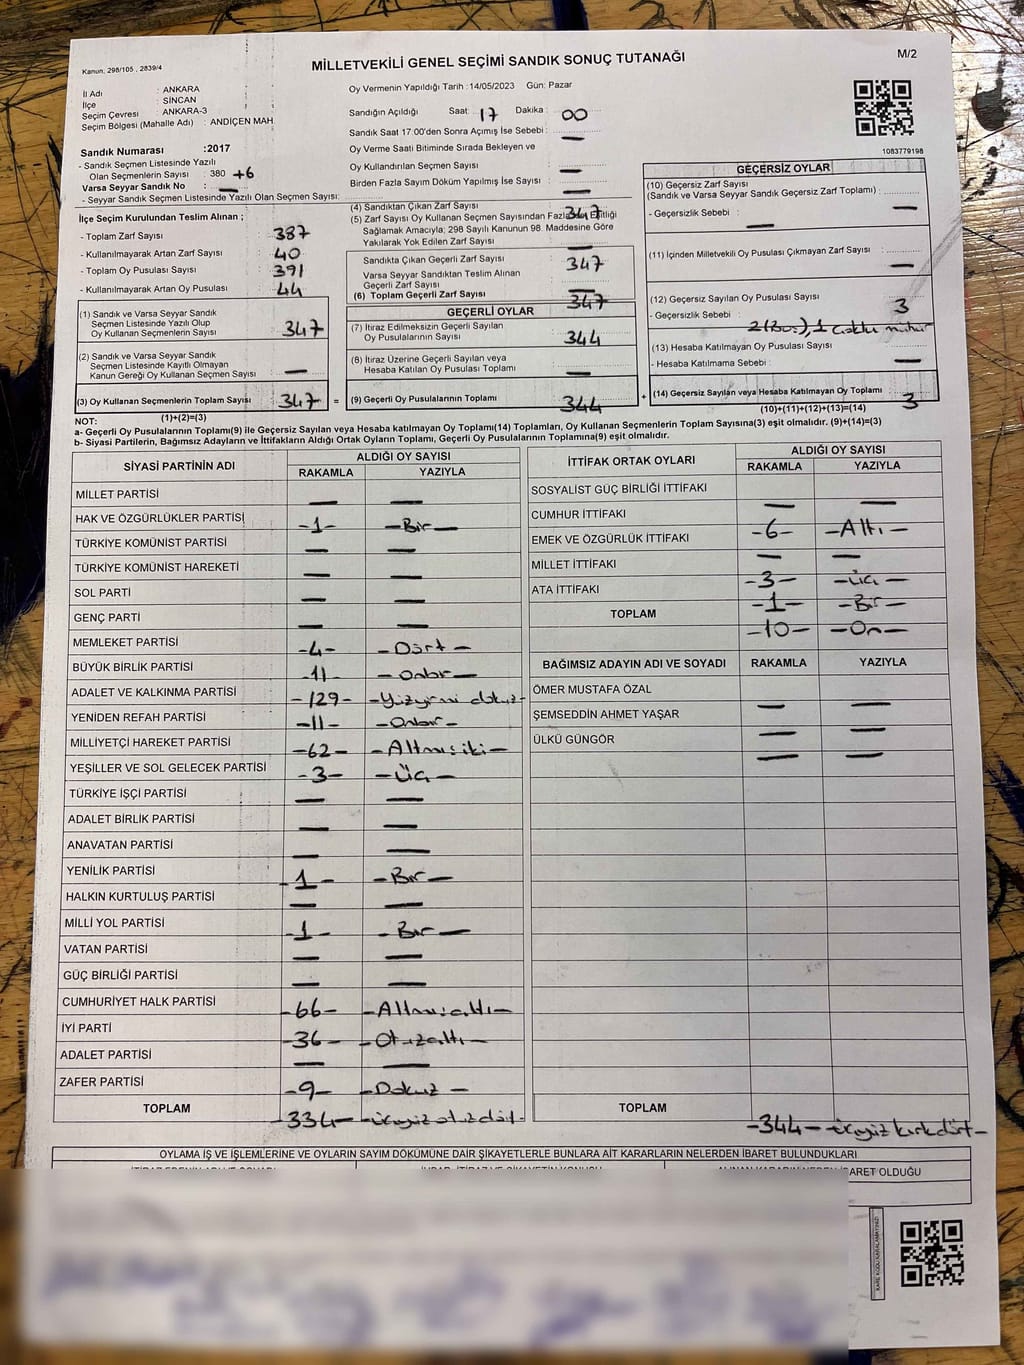 MİLLETVEKİLİ GENEL SEÇİMİ SANDIK SONUÇ TUTANAĞI
M/2
Kanun, 298/105 , 2839/4
İl Adı : ANKARA
İlçe : SİNCAN
Seçim Çevresi : ANKARA-3
Seçim Bölgesi (Mahalle Adı) : ANDİÇEN MAH.
Sandık Numarası :2017
- Sandık Seçmen Listesinde Yazılı
Olan Seçmenlerin Sayısı : 380 +6
Varsa Seyyar Sandık No : —
- Seyyar Sandık Seçmen Listesinde Yazılı Olan Seçmen Sayısı:
Oy Vermenin Yapıldığı Tarih :14/05/2023 Gün: Pazar
Sandığın Açıldığı Saat: 17 Dakika : 00
Sandık Saat 17:00'den Sonra Açımış İse Sebebi : —
Oy Verme Saati Bitiminde Sırada Bekleyen ve
Oy Kullandırılan Seçmen Sayısı : —
Birden Fazla Sayım Döküm Yapılmış İse Sayısı : —
1083779198
İlçe Seçim Kurulundan Teslim Alınan ;
- Toplam Zarf Sayısı : 387
- Kullanılmayarak Artan Zarf Sayısı : 40
- Toplam Oy Pusulası Sayısı : 391
- Kullanılmayarak Artan Oy Pusulası : 44
(1) Sandık ve Varsa Seyyar Sandık
Seçmen Listesinde Yazılı Olup
Oy Kullanan Seçmenlerin Sayısı : 347
(2) Sandık ve Varsa Seyyar Sandık
Seçmen Listesinde Kayıtlı Olmayan
Kanun Gereği Oy Kullanan Seçmen Sayısı : —
(3) Oy Kullanan Seçmenlerin Toplam Sayısı : 347 =
(1)+(2)=(3)
(4) Sandıktan Çıkan Zarf Sayısı : 347
(5) Zarf Sayısı Oy Kullanan Seçmen Sayısından Fazla Eşitliği
Sağlamak Amacıyla; 298 Sayılı Kanunun 98. Maddesine Göre
Yakılarak Yok Edilen Zarf Sayısı : —
Sandıkta Çıkan Geçerli Zarf Sayısı : 347
Varsa Seyyar Sandıktan Teslim Alınan
Geçerli Zarf Sayısı : —
(6) Toplam Geçerli Zarf Sayısı : 347
GEÇERLİ OYLAR
(7) İtiraz Edilmeksizin Geçerli Sayılan
Oy Pusulalarının Sayısı : 344
(8) İtiraz Üzerine Geçerli Sayılan veya
Hesaba Katılan Oy Pusulası Toplamı : —
(9) Geçerli Oy Pusulalarının Toplamı : 344 +
GEÇERSİZ OYLAR
(10) Geçersiz Zarf Sayısı
(Sandık ve Varsa Seyyar Sandık Geçersiz Zarf Toplamı) : —
- Geçersizlik Sebebi : —
(11) İçinden Milletvekili Oy Pusulası Çıkmayan Zarf Sayısı : —
(12) Geçersiz Sayılan Oy Pusulası Sayısı : 3
- Geçersizlik Sebebi : 2(Boş), 1 çoklu mühür
(13) Hesaba Katılmayan Oy Pusulası Sayısı : —
- Hesaba Katılmama Sebebi :
(14) Geçersiz Sayılan veya Hesaba Katılmayan Oy Toplamı : 3
(10)+(11)+(12)+(13)=(14)
NOT:
a- Geçerli Oy Pusulalarının Toplamı(9) ile Geçersiz Sayılan veya Hesaba katılmayan Oy Toplamı(14) Toplamları, Oy Kullanan Seçmenlerin Toplam Sayısına(3) eşit olmalıdır. (9)+(14)=(3)
b- Siyasi Partilerin, Bağımsız Adayların ve İttifakların Aldığı Ortak Oyların Toplamı, Geçerli Oy Pusulalarının Toplamına(9) eşit olmalıdır.
SİYASİ PARTİNİN ADI ALDIĞI OY SAYISI
RAKAMLA YAZIYLA
MİLLET PARTİSİ — —
HAK VE ÖZGÜRLÜKLER PARTİSİ -1- -Bir-
TÜRKİYE KOMÜNİST PARTİSİ — —
TÜRKİYE KOMÜNİST HAREKETİ — —
SOL PARTİ — —
GENÇ PARTİ — —
MEMLEKET PARTİSİ -4- -Dört-
BÜYÜK BİRLİK PARTİSİ -11- -Onbir-
ADALET VE KALKINMA PARTİSİ -129- -Yüzyirmi dokuz-
YENİDEN REFAH PARTİSİ -11- -Onbir-
MİLLİYETÇİ HAREKET PARTİSİ -62- -Altmışiki-
YEŞİLLER VE SOL GELECEK PARTİSİ -3- -Üç-
TÜRKİYE İŞÇİ PARTİSİ — —
ADALET BİRLİK PARTİSİ — —
ANAVATAN PARTİSİ — —
YENİLİK PARTİSİ -1- -Bir-
HALKIN KURTULUŞ PARTİSİ — —
MİLLİ YOL PARTİSİ -1- -Bir-
VATAN PARTİSİ — —
GÜÇ BİRLİĞİ PARTİSİ — —
CUMHURİYET HALK PARTİSİ -66- -Altmışaltı-
İYİ PARTİ -36- -Otuzaltı-
ADALET PARTİSİ — —
ZAFER PARTİSİ -9- -Dokuz-
TOPLAM -334- -üçyüz otuz dört-
İTTİFAK ORTAK OYLARI ALDIĞI OY SAYISI
RAKAMLA YAZIYLA
SOSYALİST GÜÇ BİRLİĞİ İTTİFAKI — —
CUMHUR İTTİFAKI -6- -Altı-
EMEK VE ÖZGÜRLÜK İTTİFAKI — —
MİLLET İTTİFAKI -3- -Üç-
ATA İTTİFAKI -1- -Bir-
TOPLAM -10- -On-
BAĞIMSIZ ADAYIN ADI VE SOYADI RAKAMLA YAZIYLA
ÖMER MUSTAFA ÖZAL — —
ŞEMSEDDİN AHMET YAŞAR — —
ÜLKÜ GÜNGÖR — —
TOPLAM -344- -üçyüz kırkdört-
OYLAMA İŞ VE İŞLEMLERİNE VE OYLARIN SAYIM DÖKÜMÜNE DAİR ŞİKAYETLERLE BUNLARA AİT KARARLARIN NELERDEN İBARET BULUNDUKLARI
İBARET OLDUĞU